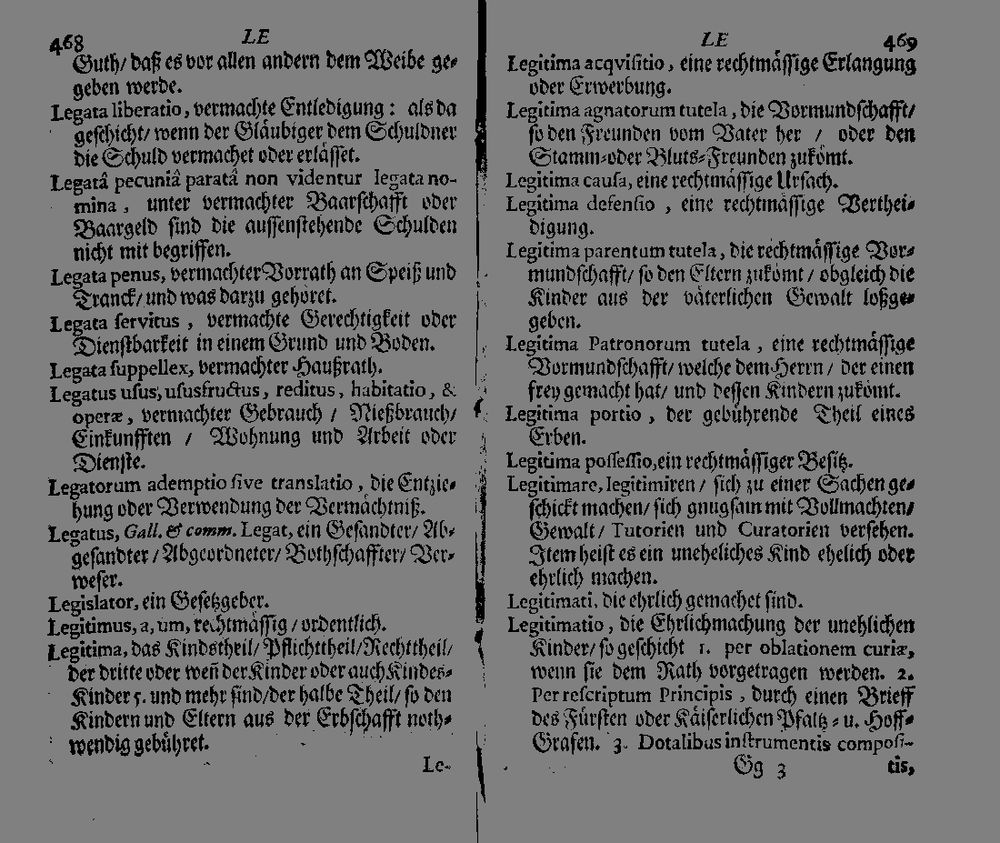 468 LE
Guth/ daß es vor allen andern dem Weibe ge-
geben werde.
Legata liberatio, vermachte Entledigung: als da
geschicht/ wenn der Gläubiger dem Schuldner
die Schuld vermachet oder erlässet.
Legatâ pecuniâ paratâ non videntur legata no-
mina, unter vermachter Baarschafft oder
Baargeld sind die aussenstehende Schulden
nicht mit begriffen.
Legata penus, vermachter Vorrath an Speiß und
Tranck/ und was darzu gehöret.
Legata servitus, vermachte Gerechtigkeit oder
Dienstbarkeit in einem Grund und Boden.
Legata suppellex, vermachter Haußrath.
Legatus usus, ususfructus, reditus, habitatio, &
operæ, vermachter Gebrauch / Nießbrauch/
Einkunfften / Wohnung und Arbeit oder
Dienste.
Legatorum ademptio sive translatio, die Entzie-
hung oder Verwendung der Vermächtniß.
Legatus, Gall. & comm. Legat, ein Gesandter/ Ab-
gesandter/ Abgeordneter/ Bothschaffter/ Ver-
weser.
Legislator, ein Gesetzgeber.
Legitimus, a, um, rechtmässig/ ordentlich.
Legitima, das Kindstheil/ Pflichttheil/ Rechttheil/
der dritte oder weñ der Kinder oder auch Kindes-
Kinder 5. und mehr sind/ der halbe Theil/ so den
Kindern und Eltern aus der Erbschafft noth-
wendig gebühret.
Le-
LE 469
Legitima acqvisitio, eine rechtmässige Erlangung
oder Erwerbung.
Legitima agnatorum tutela, die Vormundschafft/
so den Freunden vom Vater her / oder den
Stamm-oder Bluts-Freunden zukömt.
Legitima causa, eine rechtmässige Ursach.
Legitima defensio, eine rechtmässige Verthei-
digung.
Legitima parentum tutela, die rechtmässige Vor-
mundschafft/ so den Eltern zukömt/ obgleich die
Kinder aus der väterlichen Gewalt loßge-
geben.
Legitima Patronorum tutela, eine rechtmässige
Vormundschafft/ welche dem Herrn/ der einen
frey gemacht hat/ und dessen Kindern zukömt.
Legitima portio, der gebührende Theil eines
Erben.
Legitima possessio, ein rechtmässiger Besitz.
Legitimare, legitimiren/ sich zu einer Sachen ge-
schickt machen/ sich gnugsam mit Vollmachten/
Gewalt/ Tutorien und Curatorien versehen.
Item heist es ein uneheliches Kind ehelich oder
ehrlich machen.
Legitimati, die ehrlich gemachet sind.
Legitimatio, die Ehrlichmachung der unehlichen
Kinder/ so geschicht 1. per oblationem curiæ,
wenn sie dem Rath vorgetragen werden. 2.
Per rescriptum Principis, durch einen Brieff
des Fürsten oder Käiserlichen Pfaltz- u. Hoff-
Grafen. 3. Dotalibus instrumentis composi-
Gg 3 tis,